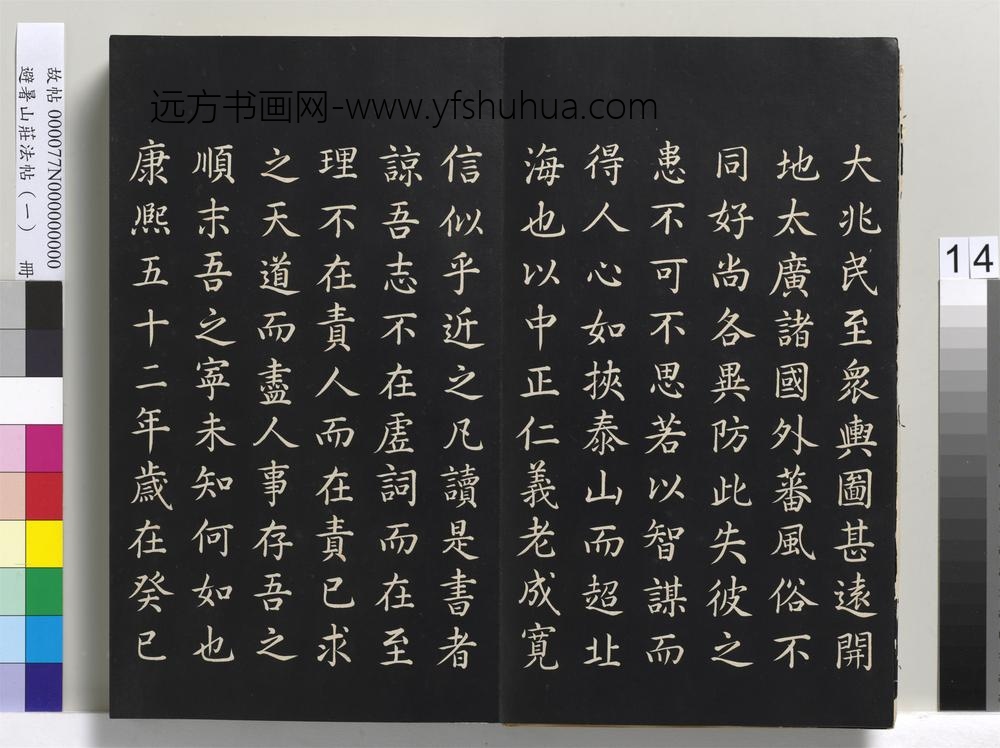 大兆民至眾輿圖甚遠開
地太廣諸國外蕃風俗不
同好尚各異防此失彼之
患不可不思若以智謀而
得人心如挾泰山而超北
海也以中正仁義老成寬
信似乎近之凡讀是書者
諒吾志不在虛詞而在至
理不在責人而在責己求
之天道而盡人事存吾之
順末吾之寧未知何如也
康熙五十二年歲在癸巳
远方书画网-www.yfshuhua.com
故帖000077N000000000
避暑山莊法帖(一) 冊
14